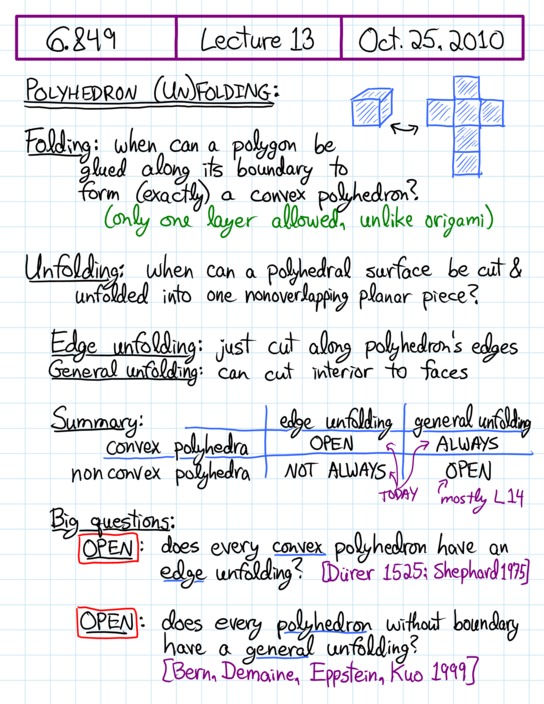 6.849 Lecture 13 Oct. 25, 2010
POLYHEDRON (UN)FOLDING:
Folding: when can a polygon be
glued along its boundary to
form (exactly) a convex polyhedron?
(only one layer allowed, unlike origami)
Unfolding: when can a polyhedral surface be cut &
unfolded into one nonoverlapping planar piece?
Edge unfolding: just cut along polyhedron's edges
General unfolding: can cut interior to faces
Summary: edge unfolding general unfolding
convex polyhedra OPEN ALWAYS
nonconvex polyhedra NOT ALWAYS OPEN
TODAY mostly L14
Big questions:
OPEN: does every convex polyhedron have an
edge unfolding? [Dürer 1525; Shephard 1975]
OPEN: does every polyhedron without boundary
have a general unfolding?
[Bern, Demaine, Eppstein, Kuo 1999]